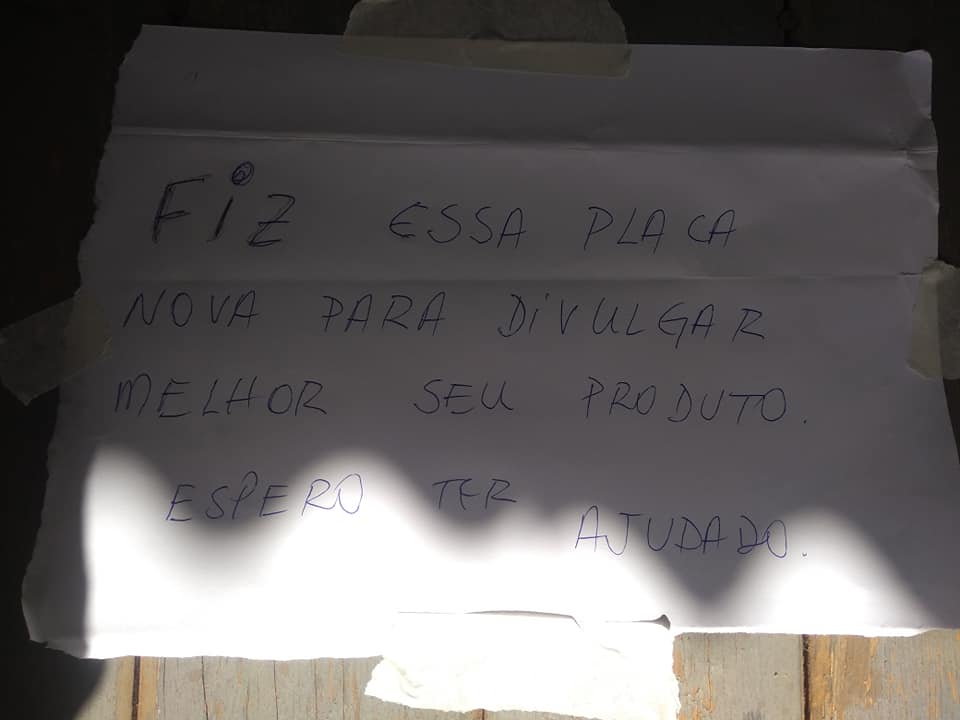 FiZ ESSA PLACA
NOVA PARA DiVULGAR
MELHOR SEU PRODUTO.
ESPERO TER AJUDADO.